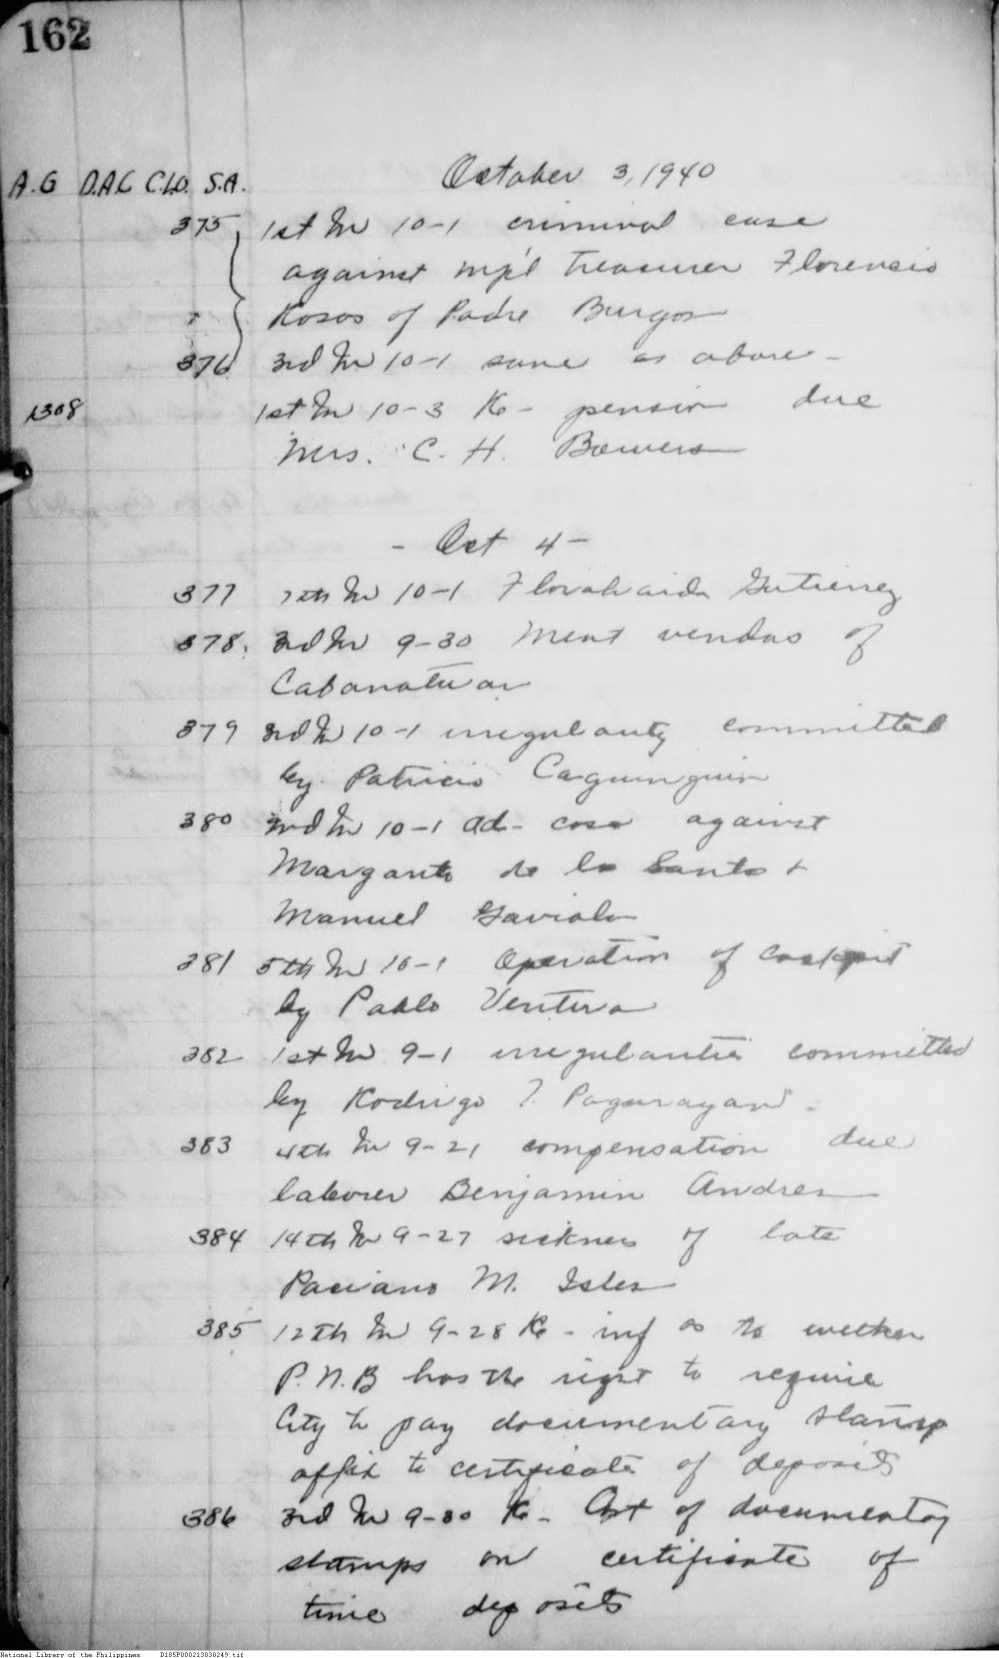 162
A.G D.A.C C.L.O. S.A. October 3, 1940
375 1st In 10-1 criminal case
against mp'l treasurer Florencio
Rosos of Padre Burgos
376 3rd In 10-1 same as above -
1308 1st In 10-3 Re - pension due
Mrs. C. H. Bowers
- Oct 4 -
377 7th In 10-1 Gutierrez
378. 3rd In 9-30 Meat vendors of
Cabanatuan
379 3rd In 10-1 irregularity committed
by Patricio Caguinguin
380 2nd In 10-1 ad - case against
Margarito de los Santos +
Manuel Gaviola
381 5th In 10-1 Operation of Cockpit
by Pablo Ventura
382 1st In 9-1 irregularities committed
by Rodrigo T. Pagurayan -
383 4th In 9-21 compensation due
laborer Benjamin Andres
384 14th In 9-27 sickness of late
Paciano M. Isles
385 12th In 9-28 Re - inf as to wether
P.N.B has the right to require
City to pay documentary stamp
affix to certificate of deposits
386 3rd In 9-30 Re - of documentary
stamps on certificate of
time deposits
National Library of the Philippines D185P000213838249.tif